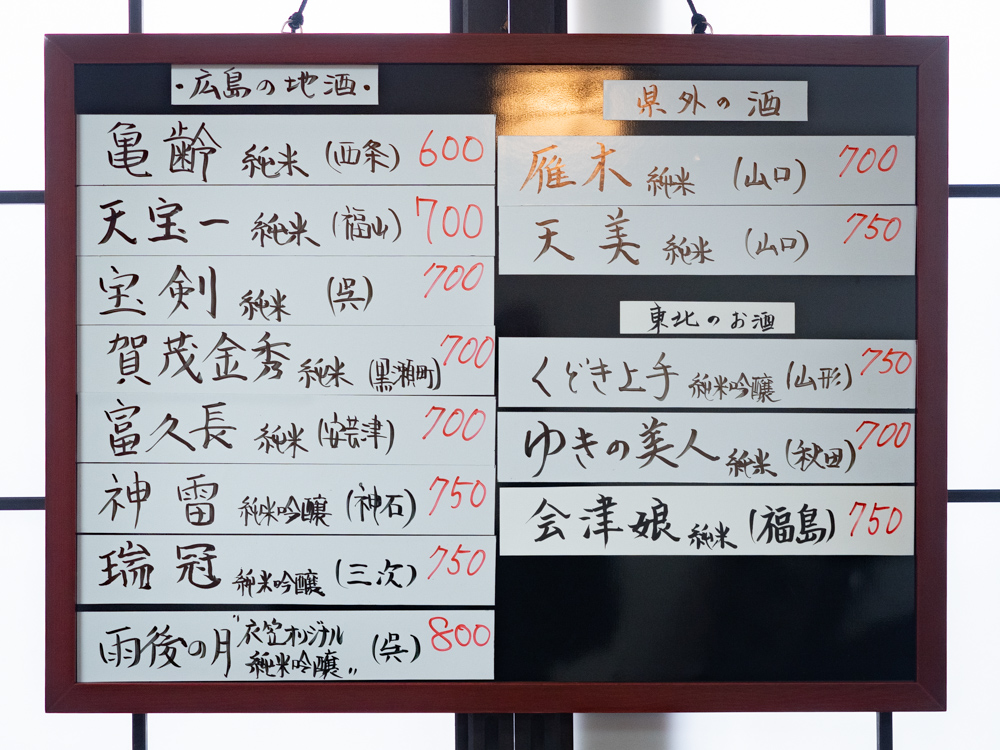 ・広島の地酒・
亀齢 純米 (西条) 600
天宝一 純米 (福山) 700
宝剣 純米 (呉) 700
賀茂金秀 純米 (黒瀬町) 700
富久長 純米 (安芸津) 700
神雷 純米吟醸 (神石) 750
瑞冠 純米吟醸 (三次) 750
雨後の月 "衣笠オリジナル
純米吟醸〃 (呉) 800
県外の酒
雁木 純米 (山口) 700
天美 純米 (山口) 750
東北のお酒
くどき上手 純米吟醸 (山形) 750
ゆきの美人 純米 (秋田) 700
会津娘 純米 (福島) 750